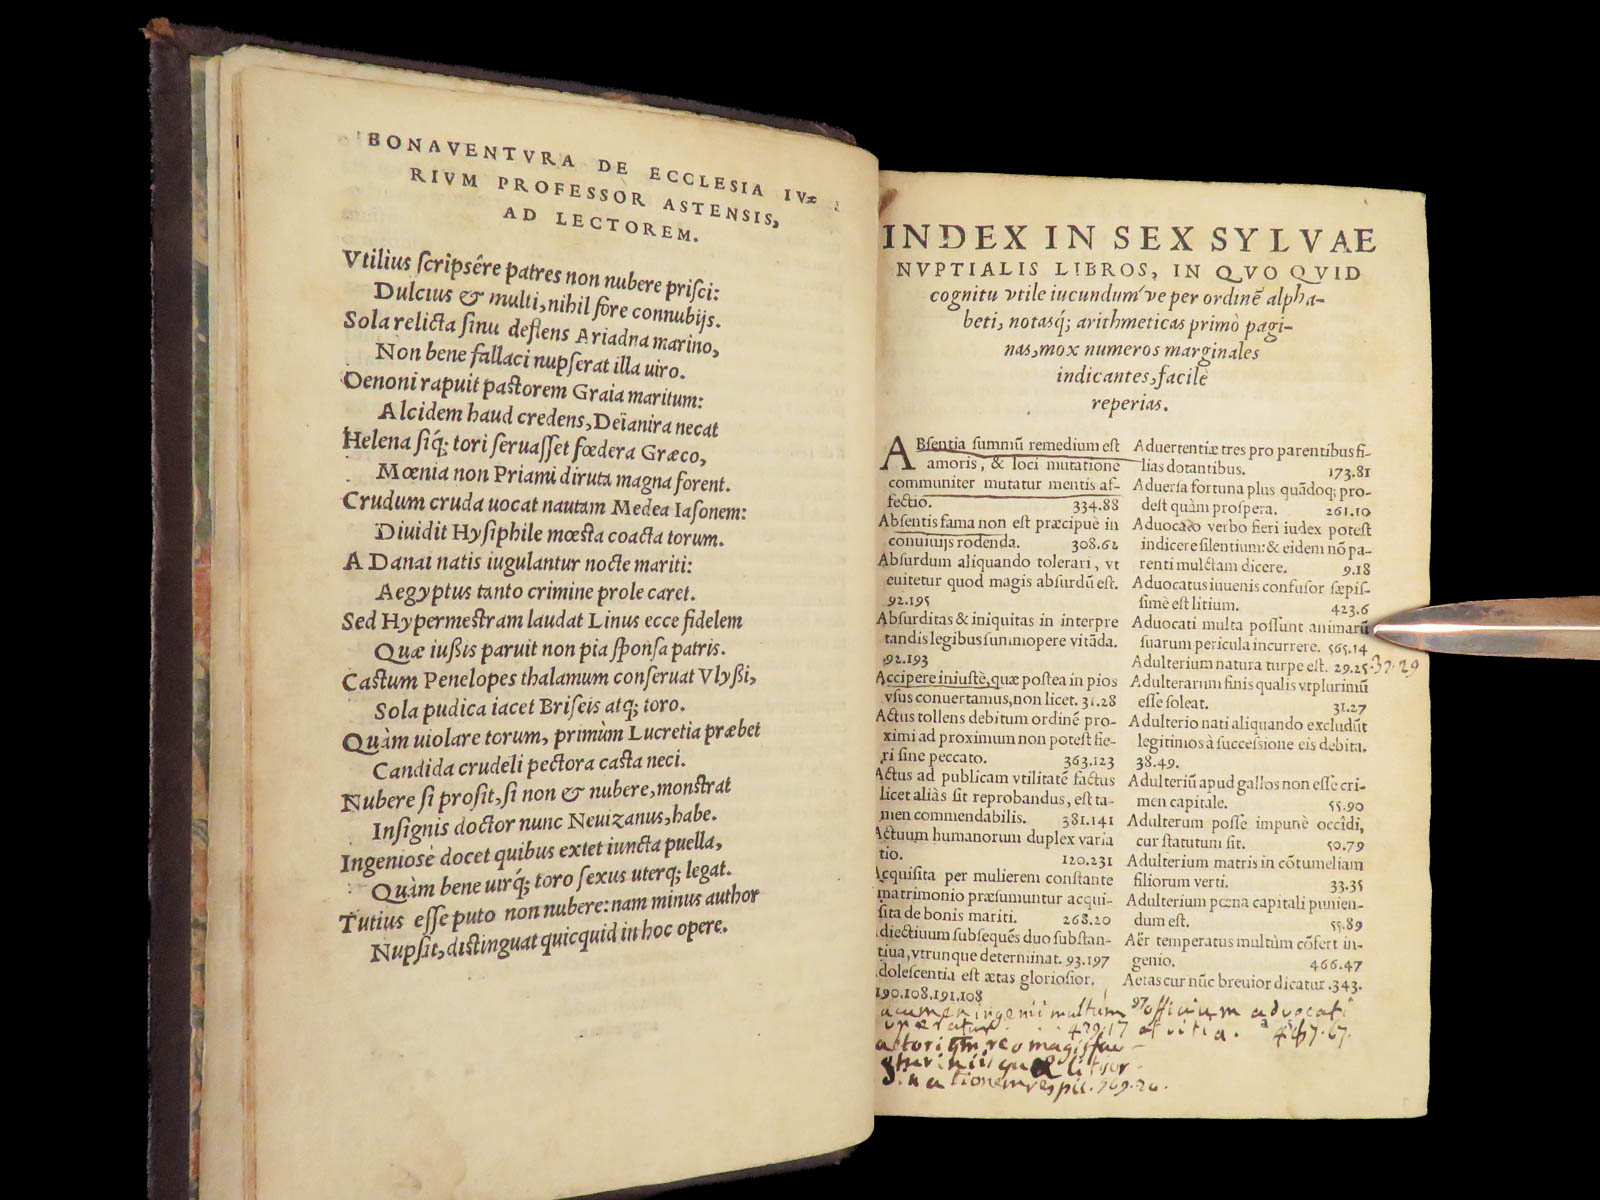 BONAVENTVRA DE ECCLESIA IV=
RIVM PROFESSOR ASTENSIS,
AD LECTOREM.
Vtilius scripsêre patres non nubere prisci:
Dulcius & multi, nihil fore connubijs.
Sola relicta sinu deflens Ariadna marino,
Non bene fallaci nupserat illa uiro.
Oenoni rapuit pastorem Graia maritum:
Alcidem haud credens, Deïanira necat
Helena siq́; tori seruasset fœdera Græco,
Mœnia non Priami diruta magna forent.
Crudum cruda uocat nautam Medea Iasonem:
Diuidit Hysiphile mœsta coacta torum.
A Danai natis iugulantur nocte mariti:
Aegyptus tanto crimine prole caret.
Sed Hypermestram laudat Linus ecce fidelem
Quæ iußis paruit non pia sponsa patris.
Castum Penelopes thalamum conseruat Vlyßi,
Sola pudica iacet Briseis atq; toro.
Quàm uiolare torum, primùm Lucretia præbet
Candida crudeli pectora casta neci.
Nubere si prosit, si non & nubere, monstrat
Insignis doctor nunc Neuizanus, habe.
Ingeniosè docet quibus extet iuncta puella,
Quàm bene uirq́; toro sexus uterq; legat.
Tutius esse puto non nubere: nam minus author
Nupsit, distinguat quicquid in hoc opere.
INDEX IN SEX SYLVAE
NVPTIALIS LIBROS, IN QVO QVID
cognitu vtile iucundum´ve per ordinē alpha-
beti, notasq́; arithmeticas primò pagi-
nas, mox numeros marginales
indicantes, facilè
reperias.
ABsentia summū remedium est
amoris, & loci mutatione
communiter mutatur mentis af-
fectio. 334.88
Absentis fama non est præcipuè in
conuiuijs rodenda. 308.62
Absurdum aliquando tolerari, vt
euitetur quod magis absurdū est.
92.195
Absurditas & iniquitas in interpre
tandis legibus summopere vitāda.
92.193
Accipere iniustè, quæ postea in pios
vsus conuertamus, non licet. 31.28
Actus tollens debitum ordinē pro-
ximi ad proximum non potest fie-
ri sine peccato. 363.123
Actus ad publicam vtilitatē factus
licet aliàs sit reprobandus, est ta-
men commendabilis. 381.141
Actuum humanorum duplex varia
tio. 120.231
Acquisita per mulierem constante
matrimonio præsumuntur acqui-
sita de bonis mariti. 268.20
diectiuum subsequēs duo substan-
tiua, vtrunque determinat. 93.197
dolescentia est ætas gloriosior.
190.108.191.108
acumen ingenii multum
operatur 429.17
Aduertentiæ tres pro parentibus fi-
lias dotantibus. 173.81
Aduersa fortuna plus quādoq; pro-
dest quàm prospera. 261.10
Aduocato verbo fieri iudex potest
indicere silentium: & eidem nō pa-
renti mulctam dicere. 9.18
Aduocatus iuuenis confusor sæpis-
simè est litium. 423.6
Aduocati multa possunt animarū
suarum pericula incurrere. 565.14
Adulterium natura turpe est. 29.25.37.29
Adulterarum finis qualis vtplurimū
esse soleat. 31.27
Adulterio nati aliquando excludūt
legitimos à successione eis debita.
38.49.
Adulteriū apud gallos non esse cri-
men capitale. 55.90
Adulterum posse impunè occîdi,
cur statutum sit. 50.79
Adulterium matris in cōtumeliam
filiorum verti. 33.35
Adulterium pœna capitali punien-
dum est. 55.89
Aër temperatus multùm cōfert in-
genio. 466.47
Aetas cur nūc breuior dicatur .343.
officium advocati